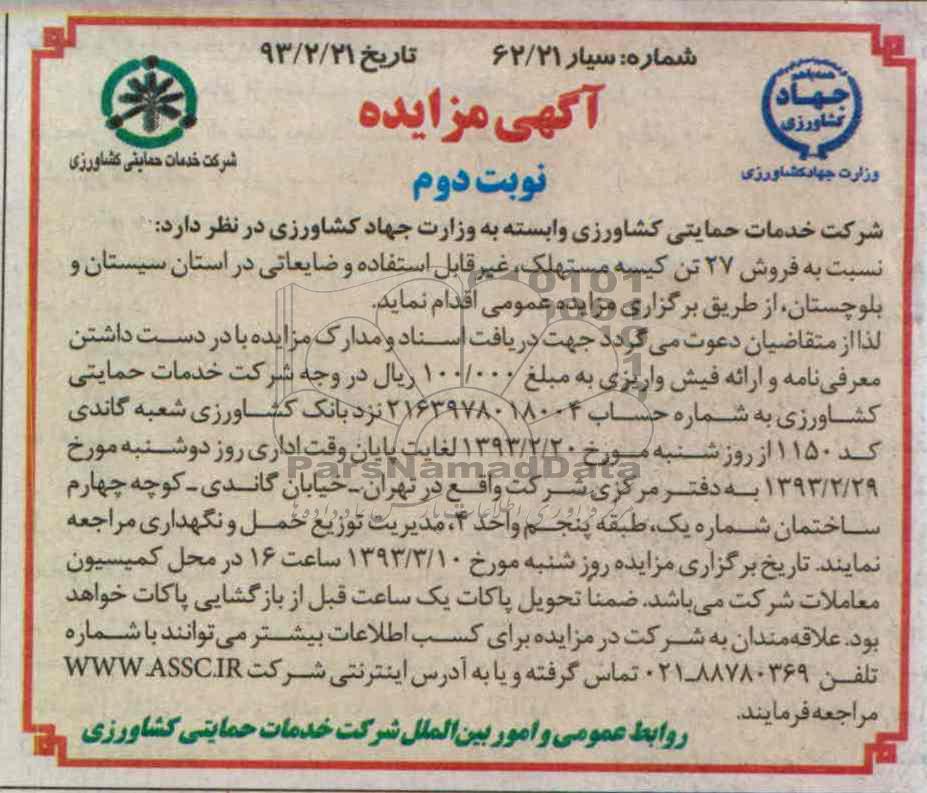 شماره: سیار ۶۲/۲۱ تاریخ ۹۳/۲/۲۱
همه با هم
جهاد
کشاورزی
وزارت جهادکشاورزی
شرکت خدمات حمایتی کشاورزی
آگهی مزایده
نوبت دوم
شرکت خدمات حمایتی کشاورزی وابسته به وزارت جهاد کشاورزی در نظر دارد:
نسبت به فروش ۲۷ تن کیسه مستهلک، غیرقابل استفاده و ضایعاتی در استان سیستان و
بلوچستان، از طریق برگزاری مزایده عمومی اقدام نماید.
لذا از متقاضیان دعوت می‌گردد جهت دریافت اسناد و مدارک مزایده با در دست داشتن
معرفی‌نامه و ارائه فیش واریزی به مبلغ ۱۰۰/۰۰۰ ریال در وجه شرکت خدمات حمایتی
کشاورزی به شماره حساب ۲۱۶۳۹۷۸۰۱۸۰۰۴ نزد بانک کشاورزی شعبه گاندی
کد ۱۱۵۰ از روز شنبه مورخ ۱۳۹۳/۲/۲۰ لغایت پایان وقت اداری روز دوشنبه مورخ
۱۳۹۳/۲/۲۹ به دفتر مرکزی شرکت واقع در تهران ـ خیابان گاندی ـ کوچه چهارم
ساختمان شماره یک، طبقه پنجم واحد ۴، مدیریت توزیع حمل و نگهداری مراجعه
نمایند. تاریخ برگزاری مزایده روز شنبه مورخ ۱۳۹۳/۳/۱۰ ساعت ۱۶ در محل کمیسیون
معاملات شرکت می‌باشد. ضمناً تحویل پاکات یک ساعت قبل از بازگشایی پاکات خواهد
بود. علاقه‌مندان به شرکت در مزایده برای کسب اطلاعات بیشتر می‌توانند با شماره
تلفن ۸۸۷۸۰۳۶۹ـ۰۲۱ تماس گرفته و یا به آدرس اینترنتی شرکت WWW.ASSC.IR
مراجعه فرمایند.
روابط عمومی و امور بین‌الملل شرکت خدمات حمایتی کشاورزی
ParsNamadData